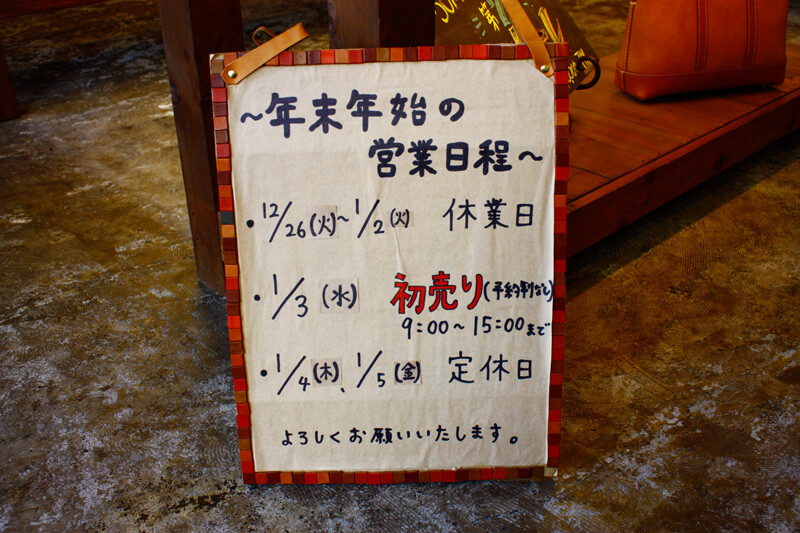 ～年末年始の
営業日程～
・12/26(火)～1/2(火) 休業日
・1/3(水) 初売り(予約割なし)
9:00～15:00まで
・1/4(木)、1/5(金) 定休日
よろしくお願いいたします。